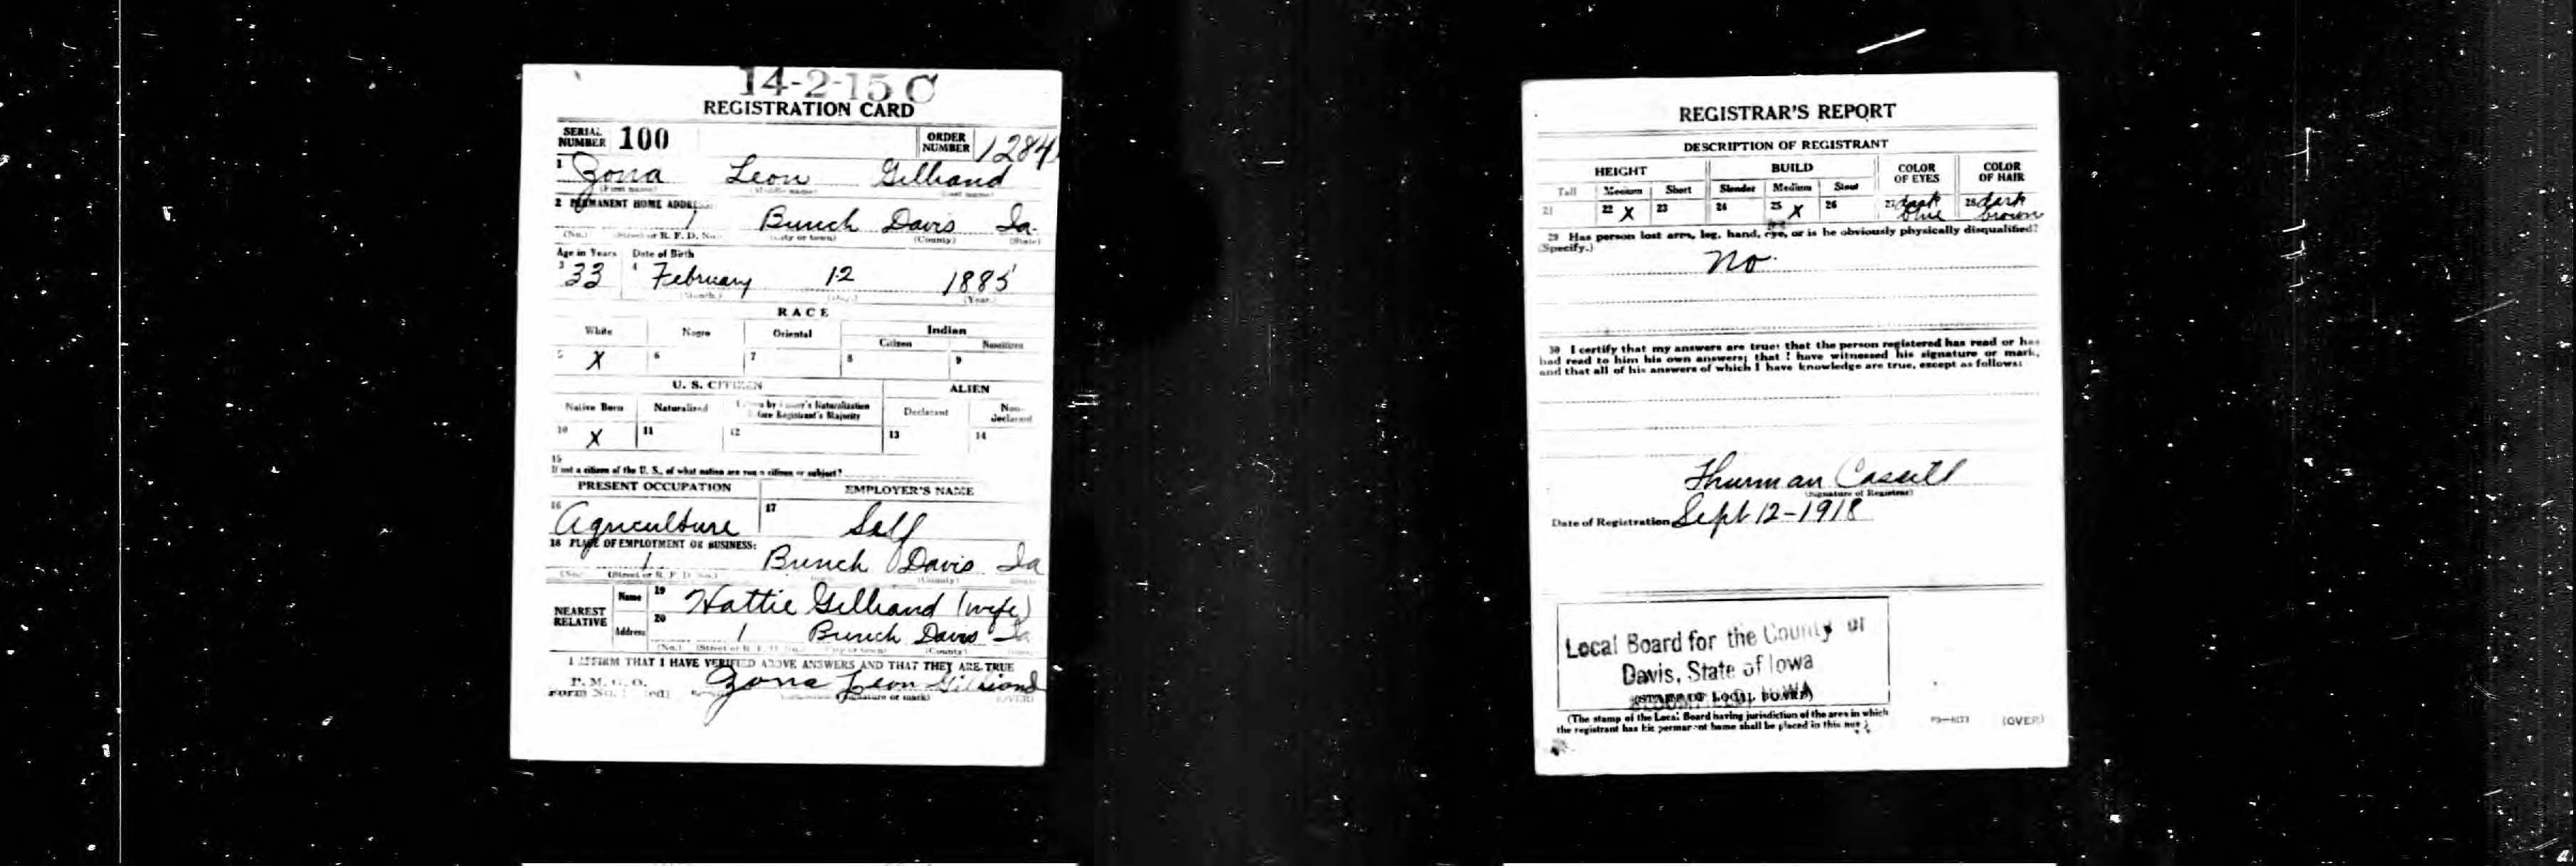 14-2-15 C
REGISTRATION CARD
SERIAL NUMBER 100 ORDER NUMBER 1284
1 Zona Leon Gilliand
(First name) (Middle name) (Last name)
2 PERMANENT HOME ADDRESS:
1 Bunch Davis Ia.
(No.) (Street or R. F. D. No.) (City or town) (County) (State)
Age in Years Date of Birth
3 33 4 February 12 1885
(Month.) (Day.) (Year.)
RACE
White Negro Oriental Indian
Citizen Noncitizen
5 X 6 7 8 9
U. S. CITIZEN ALIEN
Native Born Naturalized Citizen by Father's Naturalization Before Registrant's Majority Declarant Non-declarant
10 X 11 12 13 14
15
If not a citizen of the U. S., of what nation are you a citizen or subject?
PRESENT OCCUPATION EMPLOYER'S NAME
16 Agriculture 17 Self
18 PLACE OF EMPLOYMENT OR BUSINESS:
1 Bunch Davis Ia
(No.) (Street or R. F. D. No.) (County)
NEAREST RELATIVE Name 19 Hattie Gilliand (wife)
Address 20 1 Bunch Davis Ia
(No.) (Street or R. F. D. No.) (City or town) (County)
I AFFIRM THAT I HAVE VERIFIED ABOVE ANSWERS AND THAT THEY ARE TRUE
P. M. G. O.
Form No. Zona Leon Gilliand
(Signature or mark) (OVER)
REGISTRAR'S REPORT
DESCRIPTION OF REGISTRANT
HEIGHT BUILD COLOR OF EYES COLOR OF HAIR
Tall Medium Short Slender Medium Stout
21 22 X 23 24 25 X 26 27 dark blue 28 dark brown
29 Has person lost arm, leg, hand, eye, or is he obviously physically disqualified?
(Specify.)
No.
30 I certify that my answers are true; that the person registered has read or has
had read to him his own answers; that I have witnessed his signature or mark,
and that all of his answers of which I have knowledge are true, except as follows:
Thurman Cassill
(Signature of Registrar)
Date of Registration Sept 12-1918
Local Board for the County of
Davis, State of Iowa
BLOOMFIELD, IOWA
(STAMP OF LOCAL BOARD)
(The stamp of the Local Board having jurisdiction of the area in which
the registrant has his permanent home shall be placed in this box.)
(OVER)